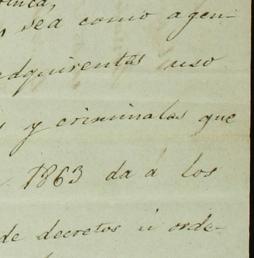 sea como agen-
adquirentes
y criminales que
1863 da á los
de decretos ú orde-